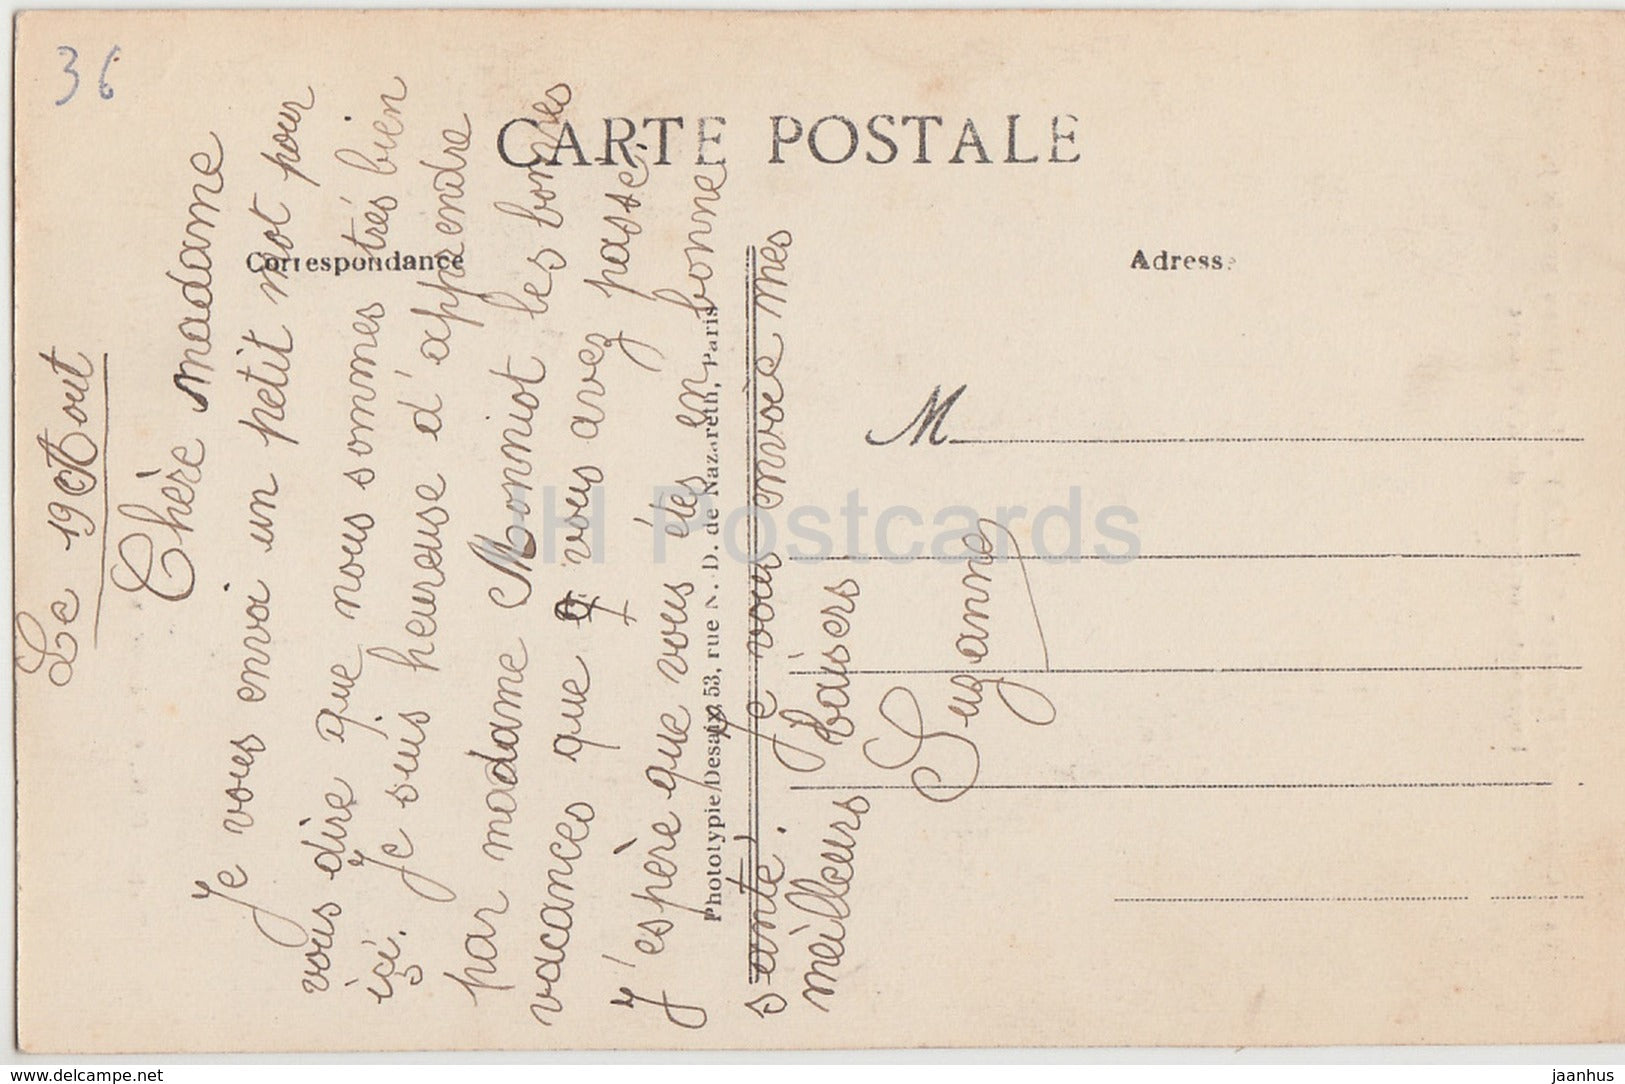 36
CARTE POSTALE
Correspondance
Adresse
M
Phototypie Desaix, 53, rue N.-D. de Nazareth, Paris
Le 19 Aout
Chère madame
Je vous envoi un petit mot pour
vous dire que nous sommes très bien
içi. Je suis heureuse d'apprendre
par madame Monniot les bonnes
vacances que vous avez passé.
J'espère que vous étes en bonne
santé. Je vous envoie mes
meilleurs baisers
Suzanne
JH Postcards
www.delcampe.net
jaanhus